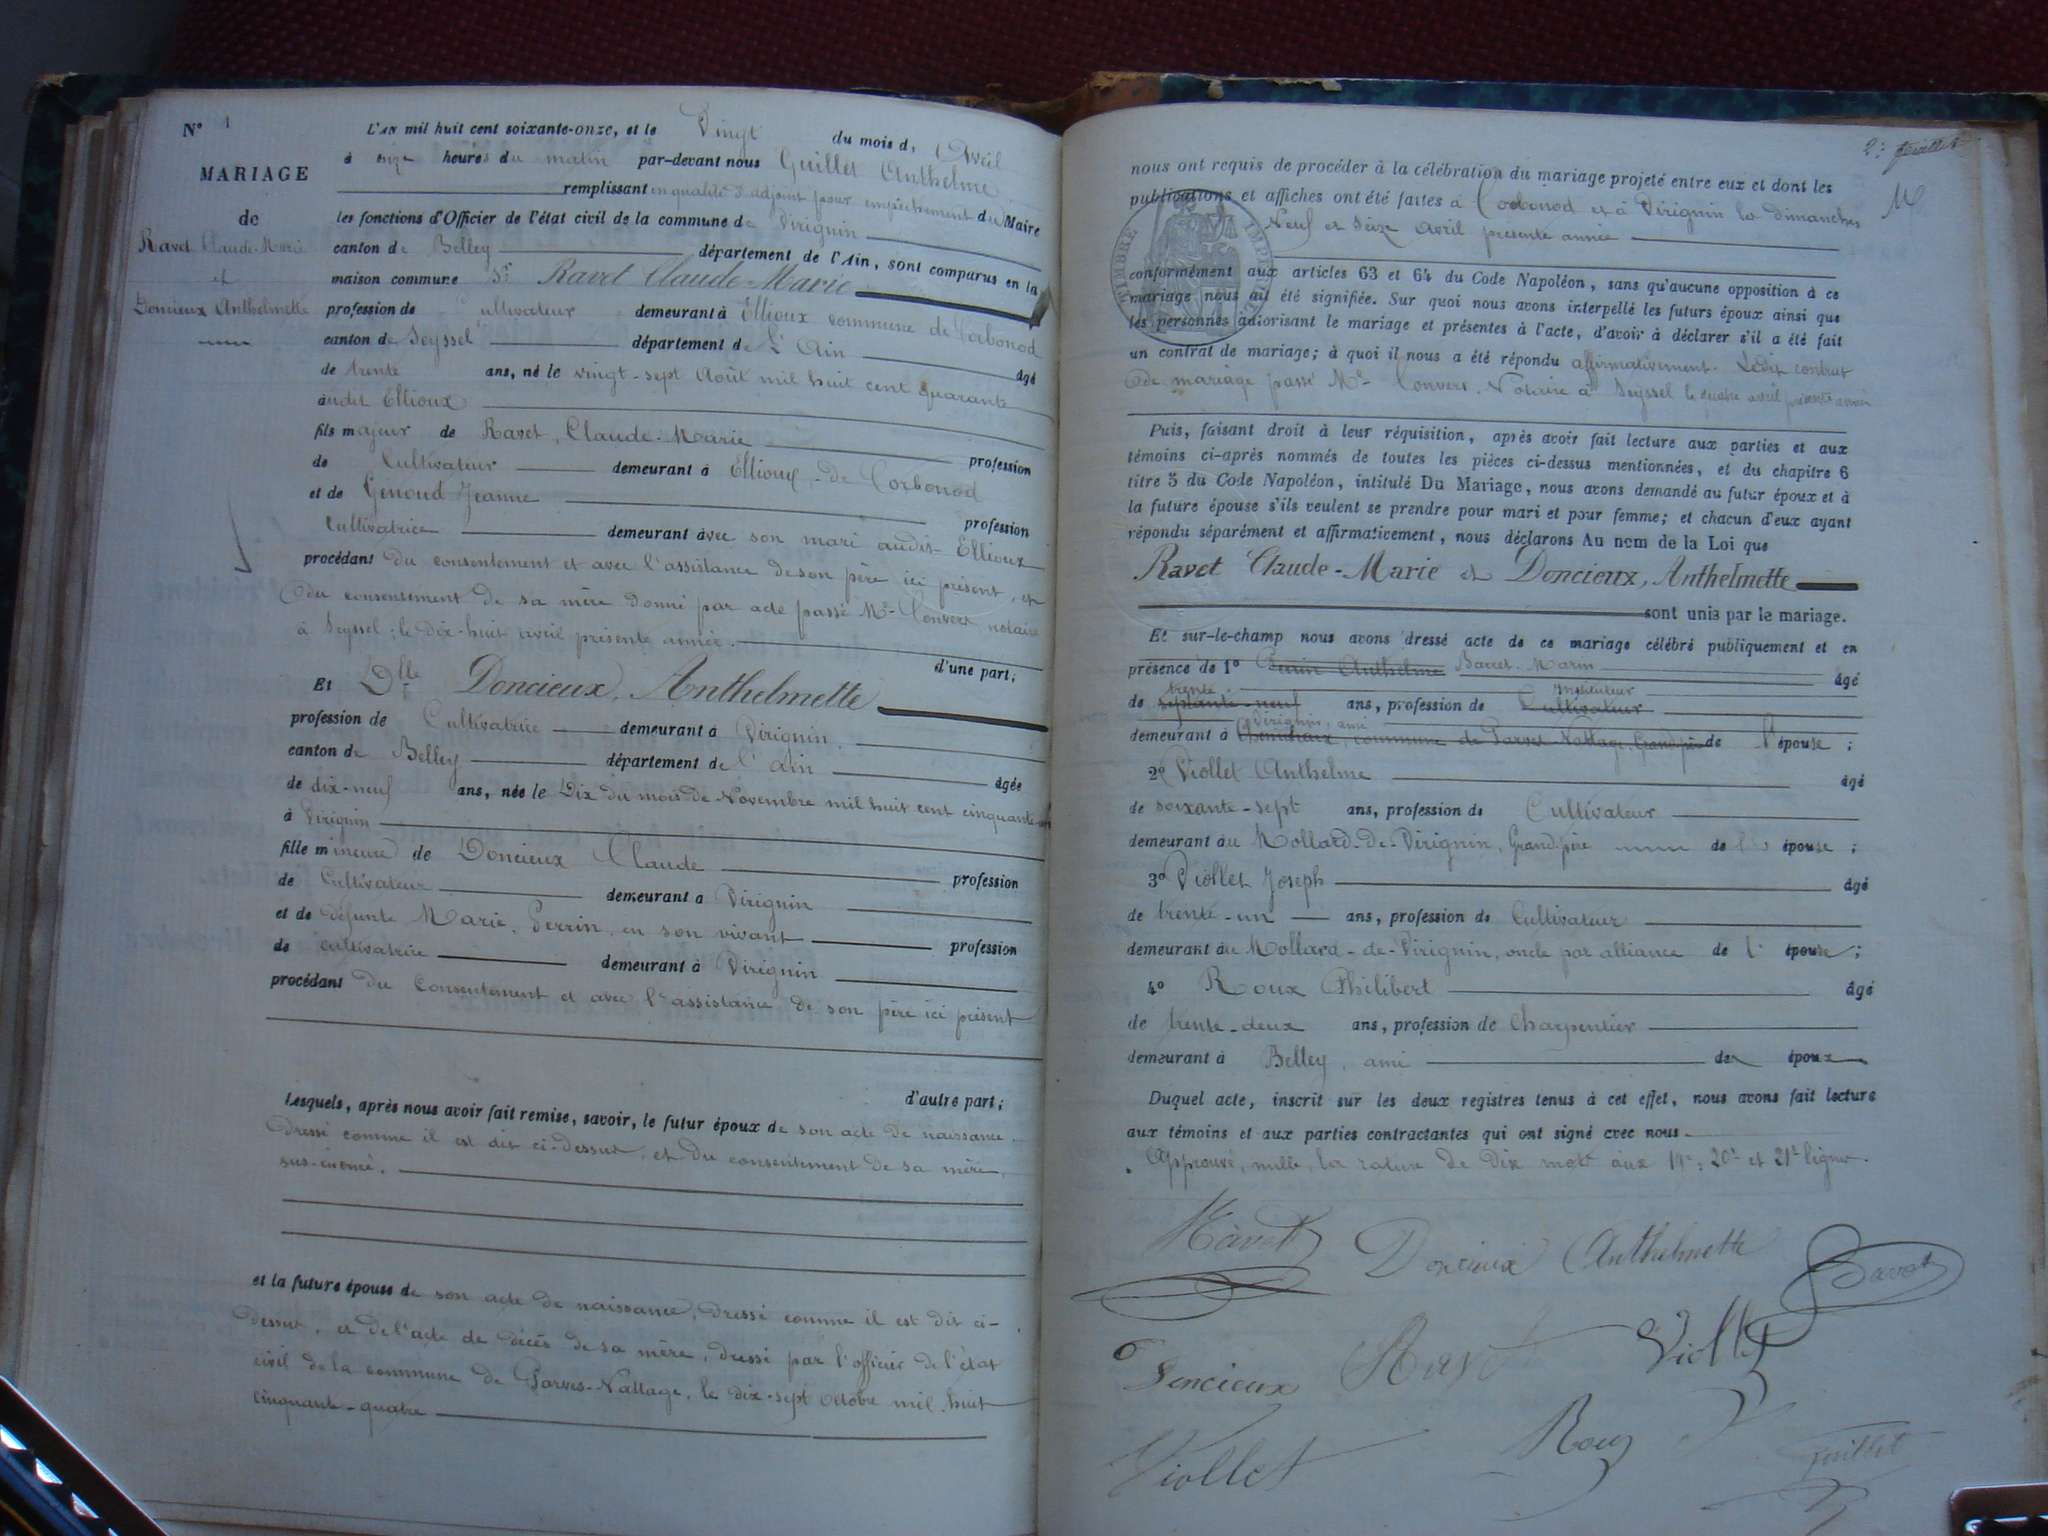 N° 1
MARIAGE
de
Ravet Claude-Marie
et
Doncieux Anthelmette
L'AN mil huit cent soixante-onze, et le Vingt du mois d'Avril
à onze heures du matin par-devant nous Guillet Anthelme
remplissant en qualité d'adjoint pour empêchement du Maire
les fonctions d'Officier de l'état civil de la commune de Virignin
canton de Belley département de l'Ain, sont comparus en la
maison commune Sr Ravet Claude-Marie
profession de cultivateur demeurant à Ellioux commune de Corbonod
canton de Seyssel département de L'Ain âgé
de trente ans, né le vingt-sept Août mil huit cent quarante
audit Ellioux
fils majeur de Ravet, Claude-Marie profession
de Cultivateur demeurant à Ellioux-de Corbonod
et de Genoud Jeanne profession
Cultivatrice demeurant avec son mari audit Ellioux
procédant du consentement et avec l'assistance de son père ici présent, et
du consentement de sa mère donné par acte passé Me Convert notaire
à Seyssel; le dix-huit avril présente année. d'une part;
Et Dlle Doncieux, Anthelmette
profession de Cultivatrice demeurant à Virignin
canton de Belley département de l'ain âgée
de dix-neuf ans, née le Dix du mois de Novembre mil huit cent cinquante-un
à Virignin
fille mineure de Doncieux Claude profession
de Cultivateur demeurant à Virignin
et de défunte Marie, Perrin, en son vivant profession
de cultivatrice demeurant à Virignin
procédant du Consentement et avec l'assistance de son père ici présent
d'autre part;
Lesquels, après nous avoir fait remise, savoir, le futur époux de son acte de naissance
dressé comme il est dit ci-dessus, et du consentement de sa mère,
sus-énoncé.
et la future épouse de son acte de naissance, dressé comme il est dit ci-
dessus, et de l'acte de décès de sa mère, dressé par l'officier de l'état
civil de la commune de Parves-Nattage, le dix-sept octobre mil huit
cinquante-quatre
2e feuillet
nous ont requis de procéder à la célébration du mariage projeté entre eux et dont les
publications et affiches ont été faites à Corbonod et à Virignin les dimanches
Neuf et Seize avril présente année
TIMBRE IMPERIAL
conformément aux articles 63 et 64 du Code Napoléon, sans qu'aucune opposition à ce
mariage nous ait été signifiée. Sur quoi nous avons interpellé les futurs époux ainsi que
les personnes autorisant le mariage et présentes à l'acte, d'avoir à déclarer s'il a été fait
un contrat de mariage; à quoi il nous a été répondu affirmativement. Ledit contrat
de mariage passé Me Convert, Notaire à Seyssel le quatre avril présente année
Puis, faisant droit à leur réquisition, après avoir fait lecture aux parties et aux
témoins ci-après nommés de toutes les pièces ci-dessus mentionnées, et du chapitre 6
titre 5 du Code Napoléon, intitulé Du Mariage, nous avons demandé au futur époux et à
la future épouse s'ils veulent se prendre pour mari et pour femme; et chacun d'eux ayant
répondu séparément et affirmativement, nous déclarons Au nom de la Loi que
Ravet Claude-Marie et Doncieux, Anthelmette
sont unis par le mariage.
Et sur-le-champ nous avons dressé acte de ce mariage célébré publiquement et en
présence de 1° Perrin Anthelme Marin âgé
trente Instituteur
de septante-neuf ans, profession de Cultivateur
Virignin, ami
demeurant à commune de Parves-Nattage, Grand père de l'épouse;
2° Viollet Anthelme âgé
de soixante-sept ans, profession de Cultivateur
demeurant au Mollard-de-Virignin, Grand-père de l'épouse;
3° Viollet Joseph âgé
de trente-un ans, profession de Cultivateur
demeurant au Mollard-de-Virignin, oncle par alliance de l'épouse;
4° Roux Philibert âgé
de trente-deux ans, profession de Charpentier
demeurant à Belley, ami des époux
Duquel acte, inscrit sur les deux registres tenus à cet effet, nous avons fait lecture
aux témoins et aux parties contractantes qui ont signé avec nous
Approuvé, nulle, la rature de Dix mots aux 19e, 20e et 21e lignes.
Ravet Doncieux Anthelmette
Doncieux Ravet Viollet
Viollet Roux Guillet